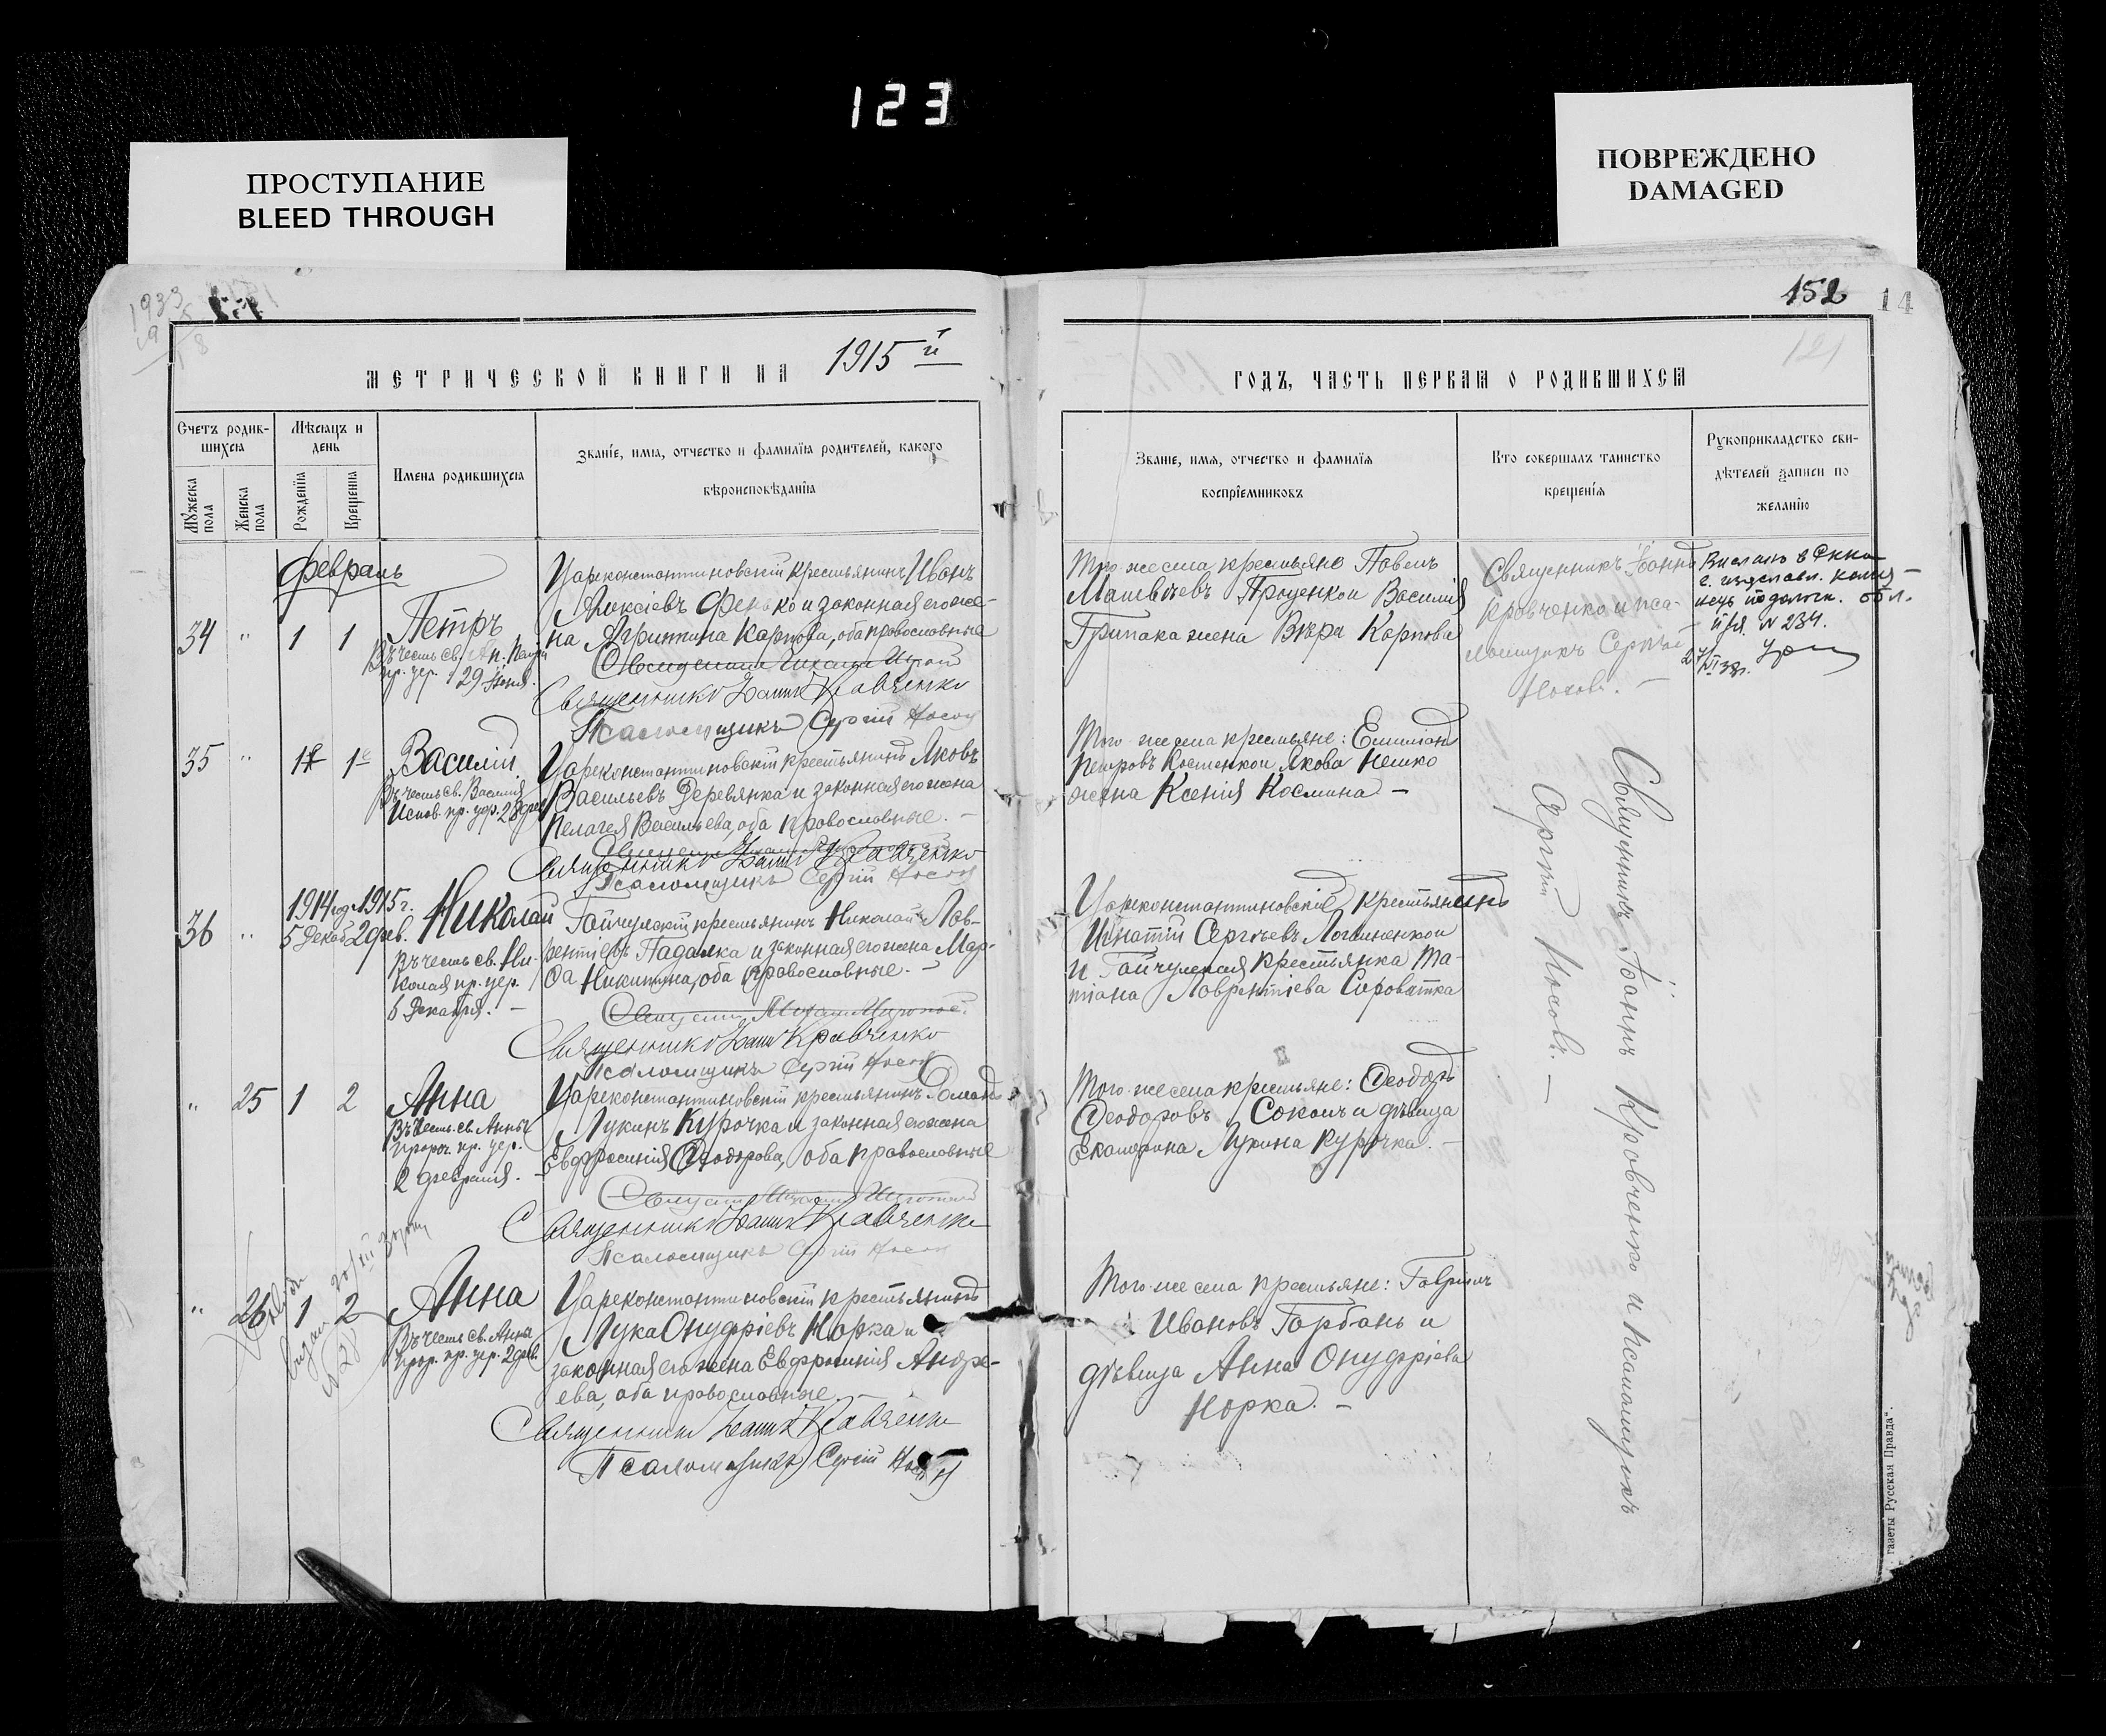 123
ПРОСТУПАНИЕ
BLEED THROUGH
ПОВРЕЖДЕНО
DAMAGED
1933
152
14
МЕТРИЧЕСКОЙ КНИГИ НА 1915й
ГОДЪ, ЧАСТЬ ПЕРВАЯ О РОДИВШИХСЯ
Счетъ родив-
шихся
Мужеска пола
Женска пола
Мѣсяцъ и
день
Рожденія
Крещенія
Имена родившихся
Званіе, имя, отчество и фамилія родителей, какого
вѣроисповѣданія
Званіе, имя, отчество и фамилія
воспріемниковъ
Кто совершалъ таинство
крещенія
Рукоприкладство сви-
дѣтелей записи по
желанію
Февраль
34 " 1 1
Петръ
Въ честь св. Ап. Петра
пр. цер. 29 Іюня.
Цареконстантиновскій крестьянинъ Иванъ
Алексіевъ Фенько и законная его же-
на Агриппина Карпова, оба православные
Священникъ Іоаннъ Кравченко
Псаломщикъ Сергій Носов
Того-же села крестьяне Павелъ
Матвѣевъ Проценко и Василія
Грипака жена Вѣра Карпова
Священникъ Іоаннъ
Кравченко и пса-
ломщикъ Сергій
Носовъ. —
N 284.
35 " 1 1
Василій
Въ честь св. Василія
Испов. пр. цер. 28 фев.
Цареконстантиновскій крестьянинъ Яковъ
Васильевъ Деревянка и законная его жена
Пелагея Васильева, оба православные. —
Священникъ Іоаннъ Кравченко
Псаломщикъ Сергій Носов
Того-же села крестьяне: Емиліанъ
Петровъ Костенко и Якова Нешко
жена Ксенія Космина —
1914 год. 1915 г.
36 " 5 Декаб. 2 фев.
Николай
Въ честь св. Ни-
колая пр. цер.
6 Декабря. —
Гайчульскій крестьянинъ Николай Лав-
рентіевъ Падалка и законная его жена Мар-
фа Никитина, оба православные. —
Священникъ Іоаннъ Кравченко
Псаломщикъ Сергій Носов
Цареконстантиновскій крестьянинъ
Игнатій Сергѣевъ Логвиненко и
и Гайчульская крестьянка Та-
тіана Лаврентіева Сыроватка
Священникъ Іоаннъ Кравченко и псаломщикъ
Сергій Носовъ. —
" 25 1 2
Анна
Въ честь св. Анны
пророч. пр. цер.
2 февраля. —
Цареконстантиновскій крестьянинъ Романъ
Лукинъ Курочка и законная его жена
Евфросинія Ѳеодорова, оба православные
Священникъ Іоаннъ Кравченко
Псаломщикъ Сергій Носов
Того-же села крестьяне: Ѳеодоръ
Ѳеодоровъ Соколъ и дѣвица
Екатерина Лукина Курочка. —
" 26 1 2
Анна
Въ честь св. Анны
прор. пр. цер. 2 фев.
Цареконстантиновскій крестьянинъ
Лука Онуфріевъ Норка и
законная его жена Евфросинія Андре-
ева, оба православные. —
Священникъ Іоаннъ Кравченко
Псаломщикъ Сергій Носов
Того-же села крестьяне: Гавріилъ
Ивановъ Горбань и
дѣвица Анна Онуфріева
Норка. —
газеты „Русская Правда“.